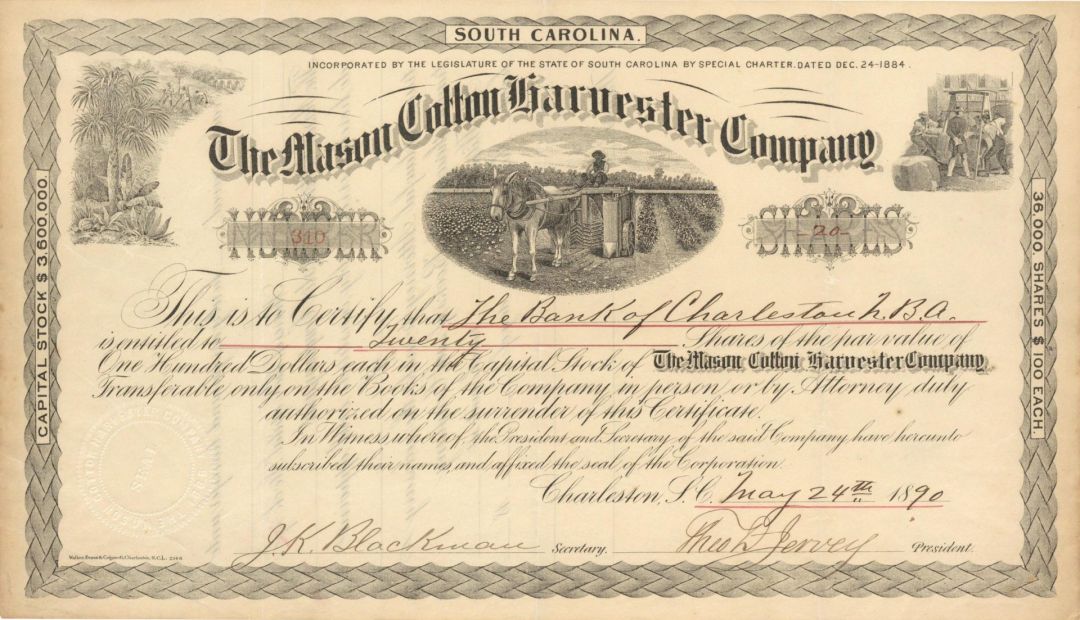 SOUTH CAROLINA.
INCORPORATED BY THE LEGISLATURE OF THE STATE OF SOUTH CAROLINA BY SPECIAL CHARTER. DATED DEC. 24-1884.
The Mason Cotton Harvester Company
NUMBER 310
SHARES -20-
CAPITAL STOCK $3,600,000.
36,000. SHARES $100 EACH.
This is to Certify that The Bank of Charleston N.B.A.
is entitled to Twenty Shares of the par value of
One Hundred Dollars each in the Capital Stock of The Mason Cotton Harvester Company
Transferable only on the Books of the Company in person or by Attorney duly
authorized on the surrender of this Certificate.
In Witness whereof, the President and Secretary of the said Company have hereunto
subscribed their names, and affixed the seal of the Corporation.
Charleston, S.C. May 24th 1890
J.K. Blackman Secretary. Theo D Jervey President.
SEAL
Walker, Evans & Cogswell, Charleston, S.C.